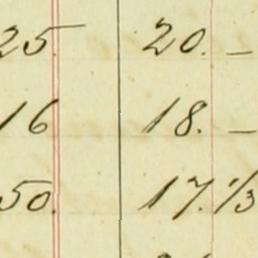 25 20. –
16 18. –
50. 17. 1/3